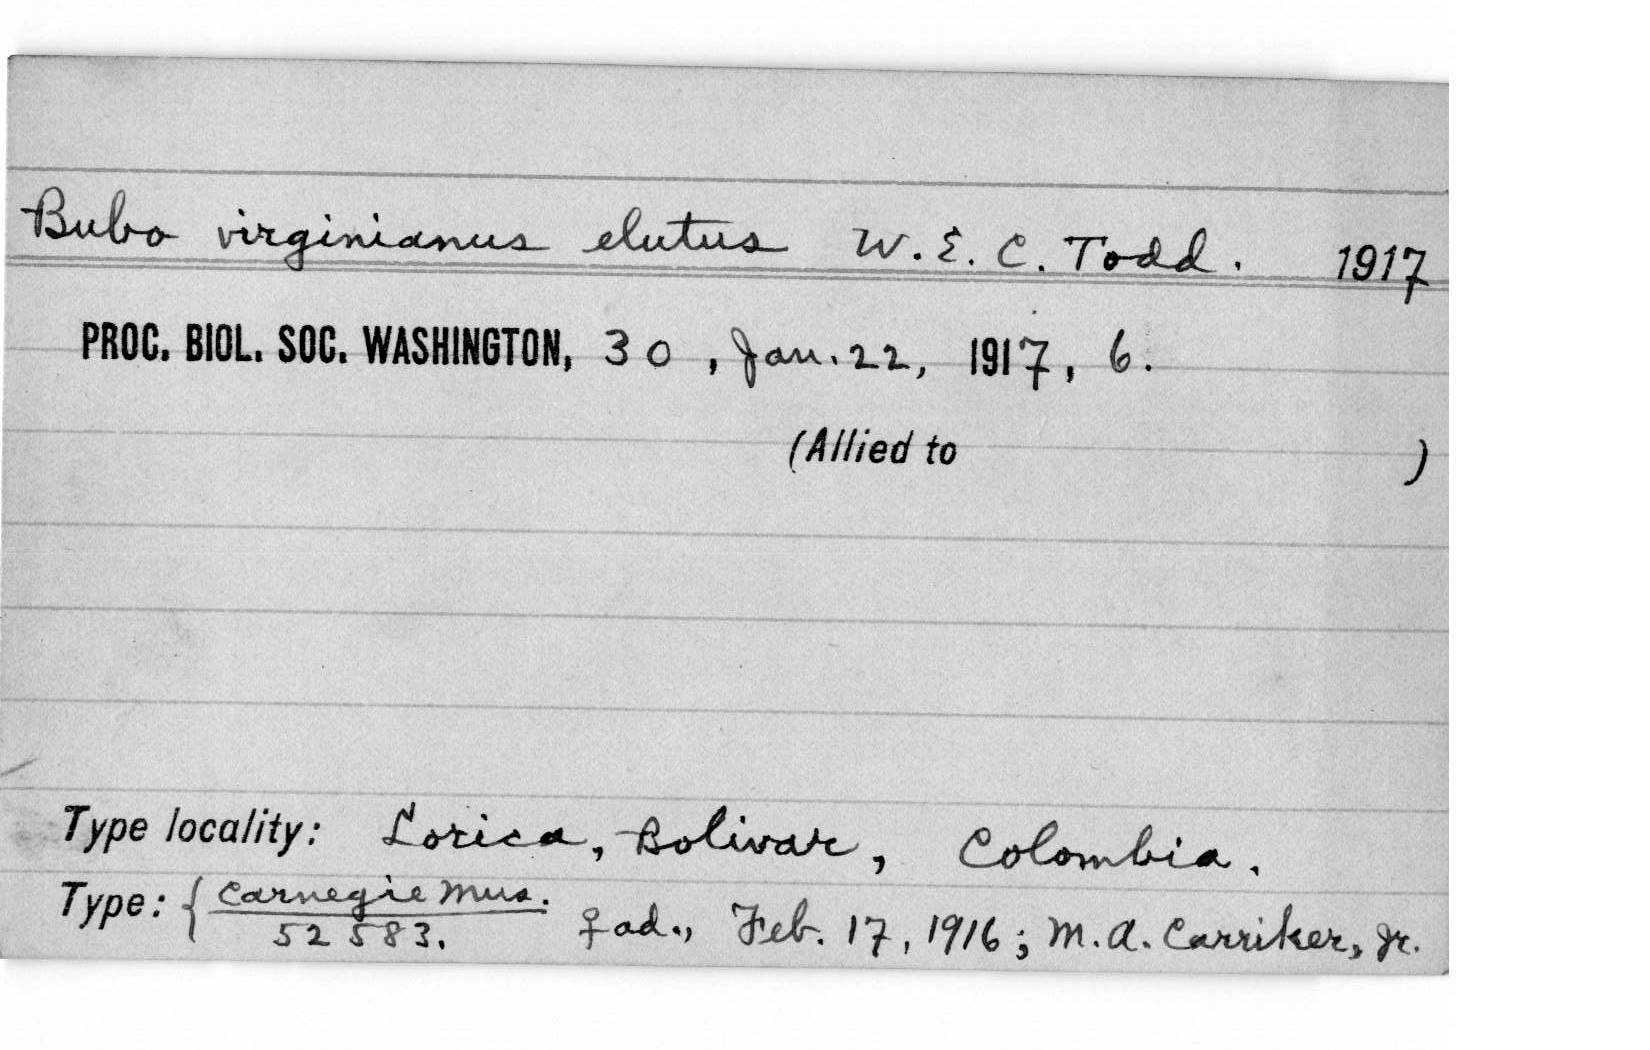 Bubo virginianus elutus W. E. C. Todd. 1917
PROC. BIOL. SOC. WASHINGTON, 30, Jan. 22, 1917, 6.
(Allied to )
Type locality: Lorica, Bolivar, Colombia.
Type: { Carnegie Mus.
52583. ♀ ad., Feb. 17, 1916; M. A. Carriker, Jr.